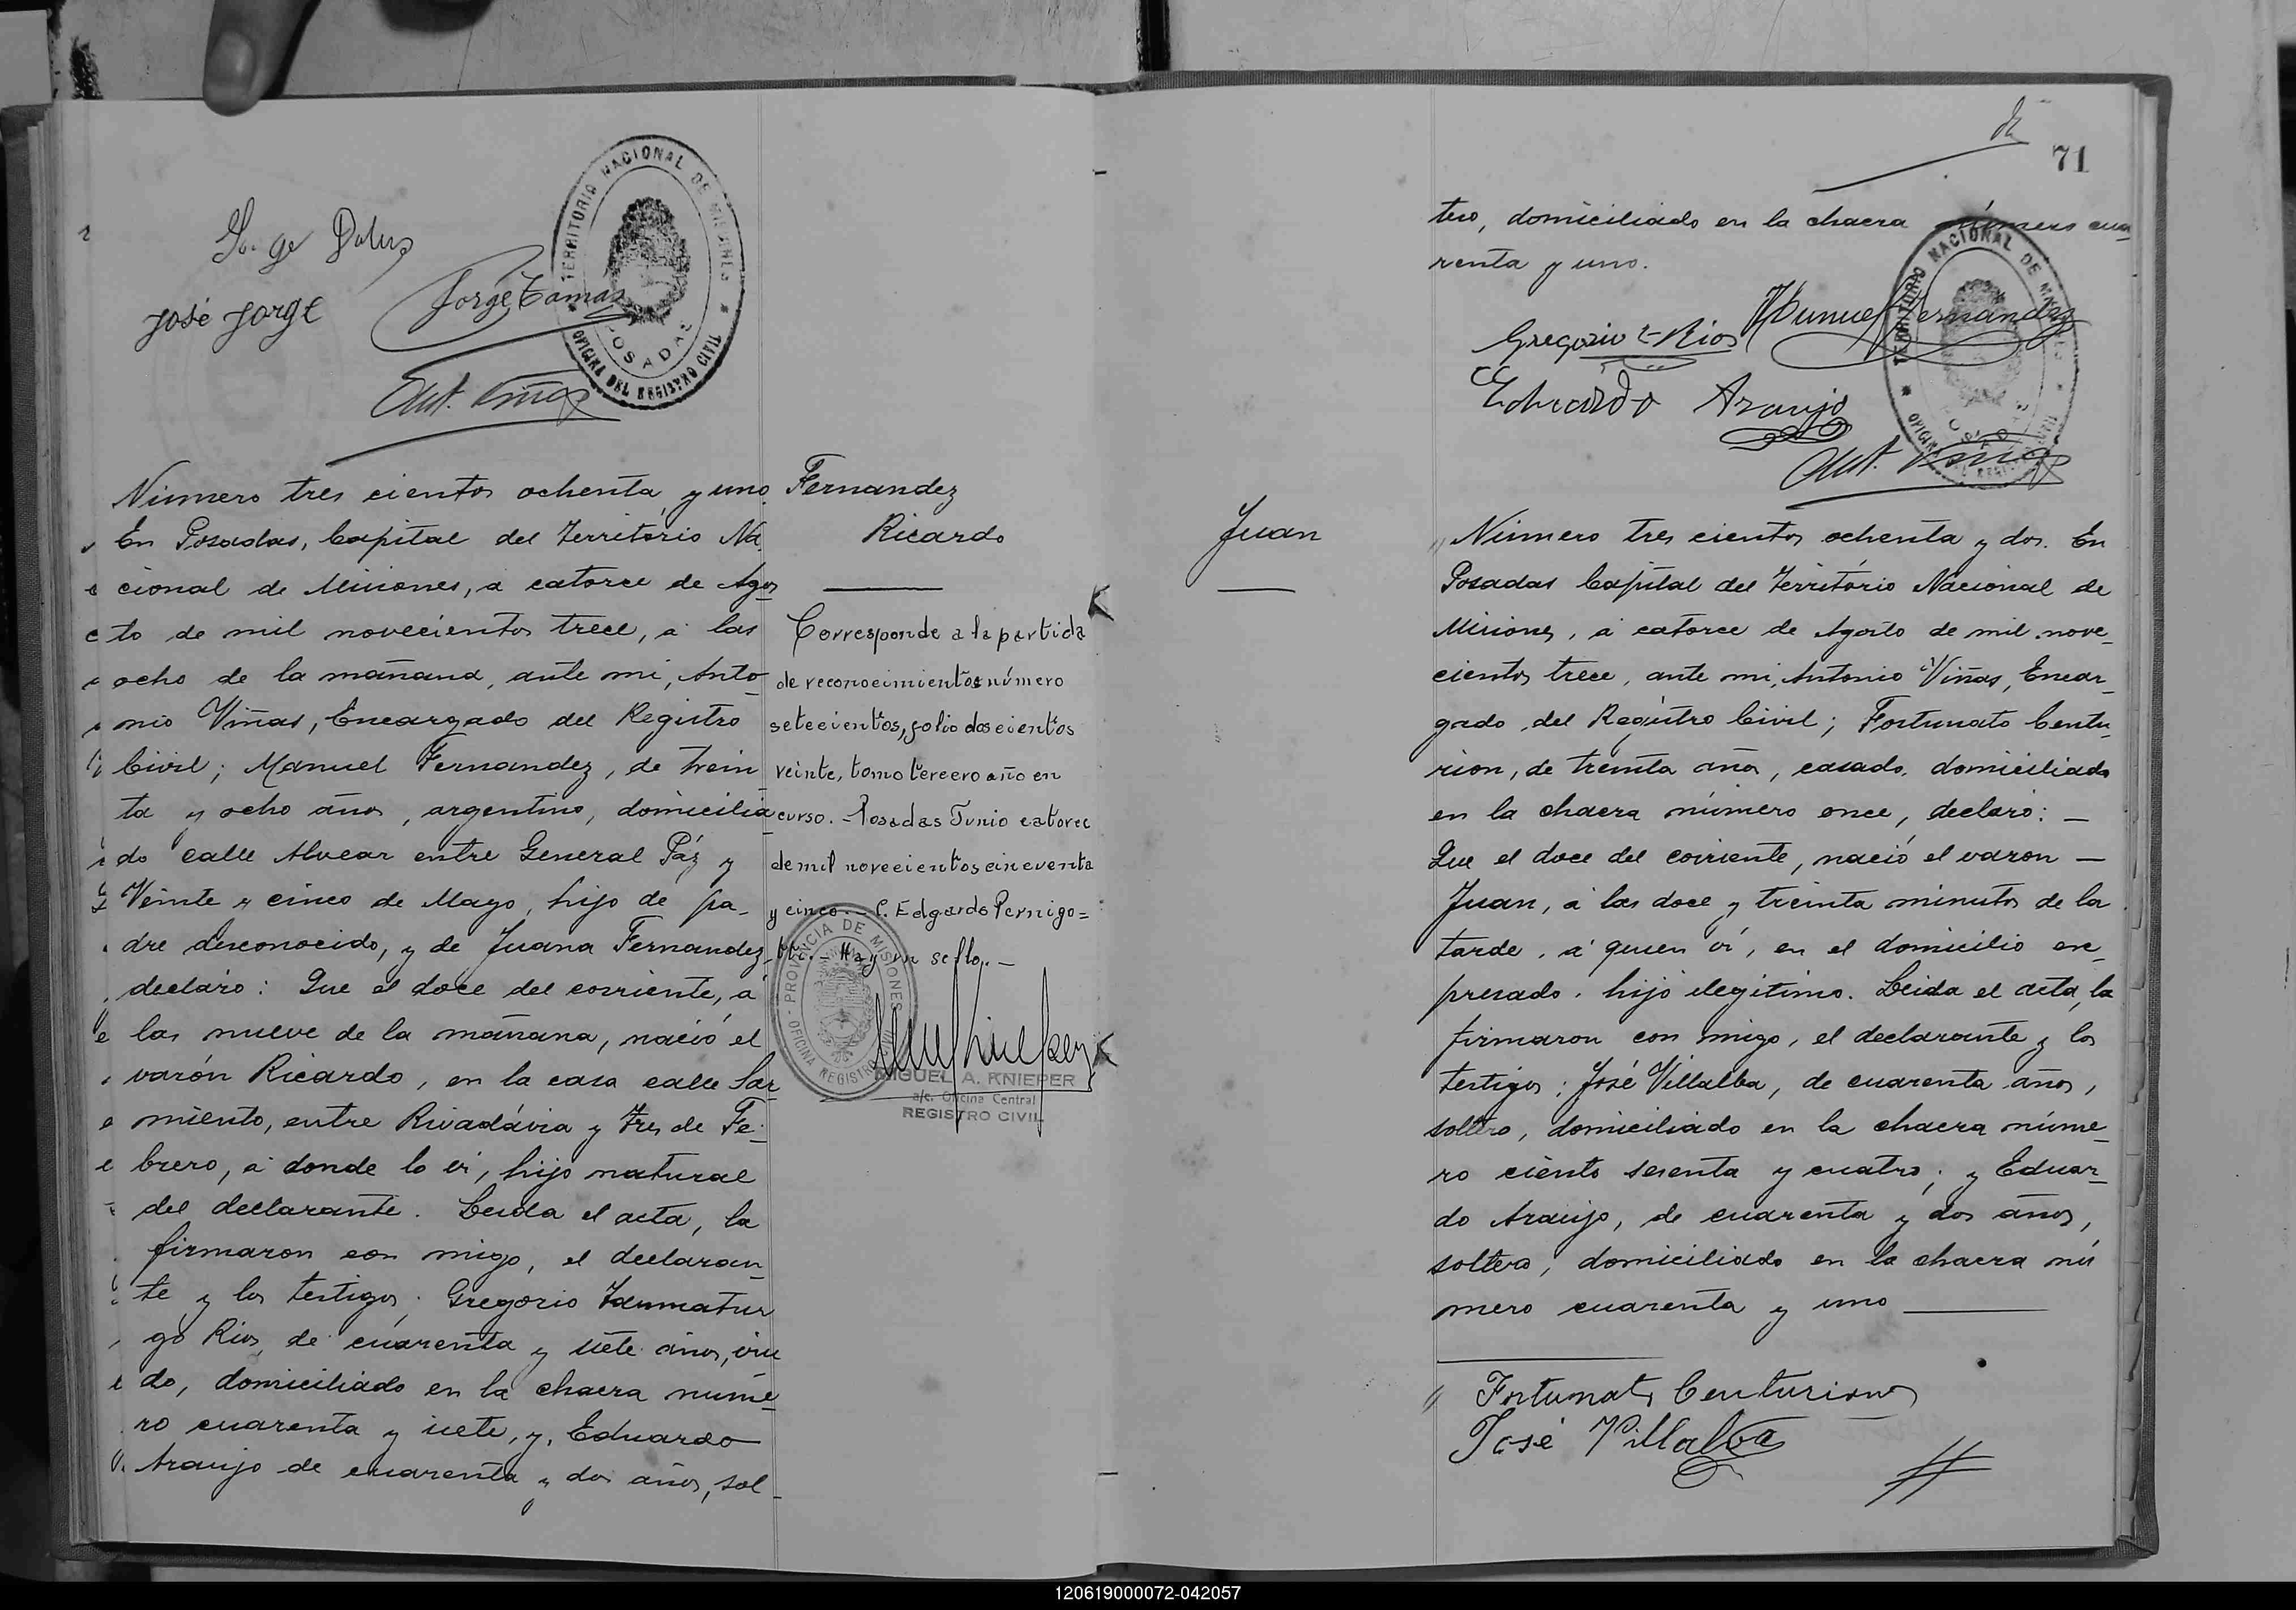 José Jorge
Jorge Tamas
Ant. Viñas
TERRITORIO NACIONAL DE MISIONES
POSADAS
OFICINA DEL REGISTRO CIVIL
Número tres cientos ochenta y uno.
En Posadas, Capital del Territorio Na
cional de Misiones, á catorce de Agos
to de mil novecientos trece, á las
ocho de la mañana, ante mi, Anto
nio Viñas, Encargado del Registro
Civil; Manuel Fernandez, de trein
ta y ocho años, argentino, domicilia
do calle Alvear entre General Páz y
Veinte y cinco de Mayo, hijo de pa-
dre desconocido, y de Juana Fernandez
declaró: Que el doce del corriente, á
las nueve de la mañana, nació el
varón Ricardo, en la casa calle Sar
miento, entre Rivadávia y Tres de Fe-
brero, á donde lo ví, hijo natural
del declarante. Leida el acta, la
firmaron con migo, el declaran
te y los testigos: Gregorio Taumatur
go Rios, de cuarenta y siete años, viu
do, domiciliado en la chacra núme
ro cuarenta y siete, y, Eduardo
Araujo de cuarenta y dos años, sol-
Fernandez
Ricardo
Corresponde a la partida
de reconocimientos número
setecientos, folio doscientos
veinte, tomo tercero año en
curso. - Posadas Junio catorce
de mil novecientos cincuenta
y cinco. - C. Edgardo Pernigo=
tti. - Hay un sello. -
PROVINCIA DE MISIONES
OFICINA REGISTRO CIVIL
MIGUEL A. KNIEPER
a/c. Oficina Central
REGISTRO CIVIL
71
tero, domiciliado en la chacra número cua
renta y uno.
Gregorio T. Rios Manuel Fernandez
Eduardo Araujo
Ant. Viñas
TERRITORIO NACIONAL DE MISIONES
POSADAS
OFICINA DEL REGISTRO CIVIL
Juan
Número tres cientos ochenta y dos. En
Posadas Capital del Territorio Nacional de
Misiones, á catorce de Agosto de mil nove
cientos trece, ante mi, Antonio Viñas, Encar
gado del Registro Civil; Fortunato Centu
rion, de treinta años, casado, domiciliado
en la chacra número once, declaró: —
Que el doce del corriente, nació el varon —
Juan, á las doce y treinta minutos de la
tarde, á quien ví, en el domicilio ex-
presado, hijo ilegitimo. Leida el acta, la
firmaron con migo, el declarante y los
testigos: José Villalba, de cuarenta años,
soltero, domiciliado en la chacra núme
ro ciento sesenta y cuatro; y Eduar
do Araujo, de cuarenta y dos años,
soltero, domiciliado en la chacra nú
mero cuarenta y uno
Fortunato Centurion
José Villalba
120619000072-042057